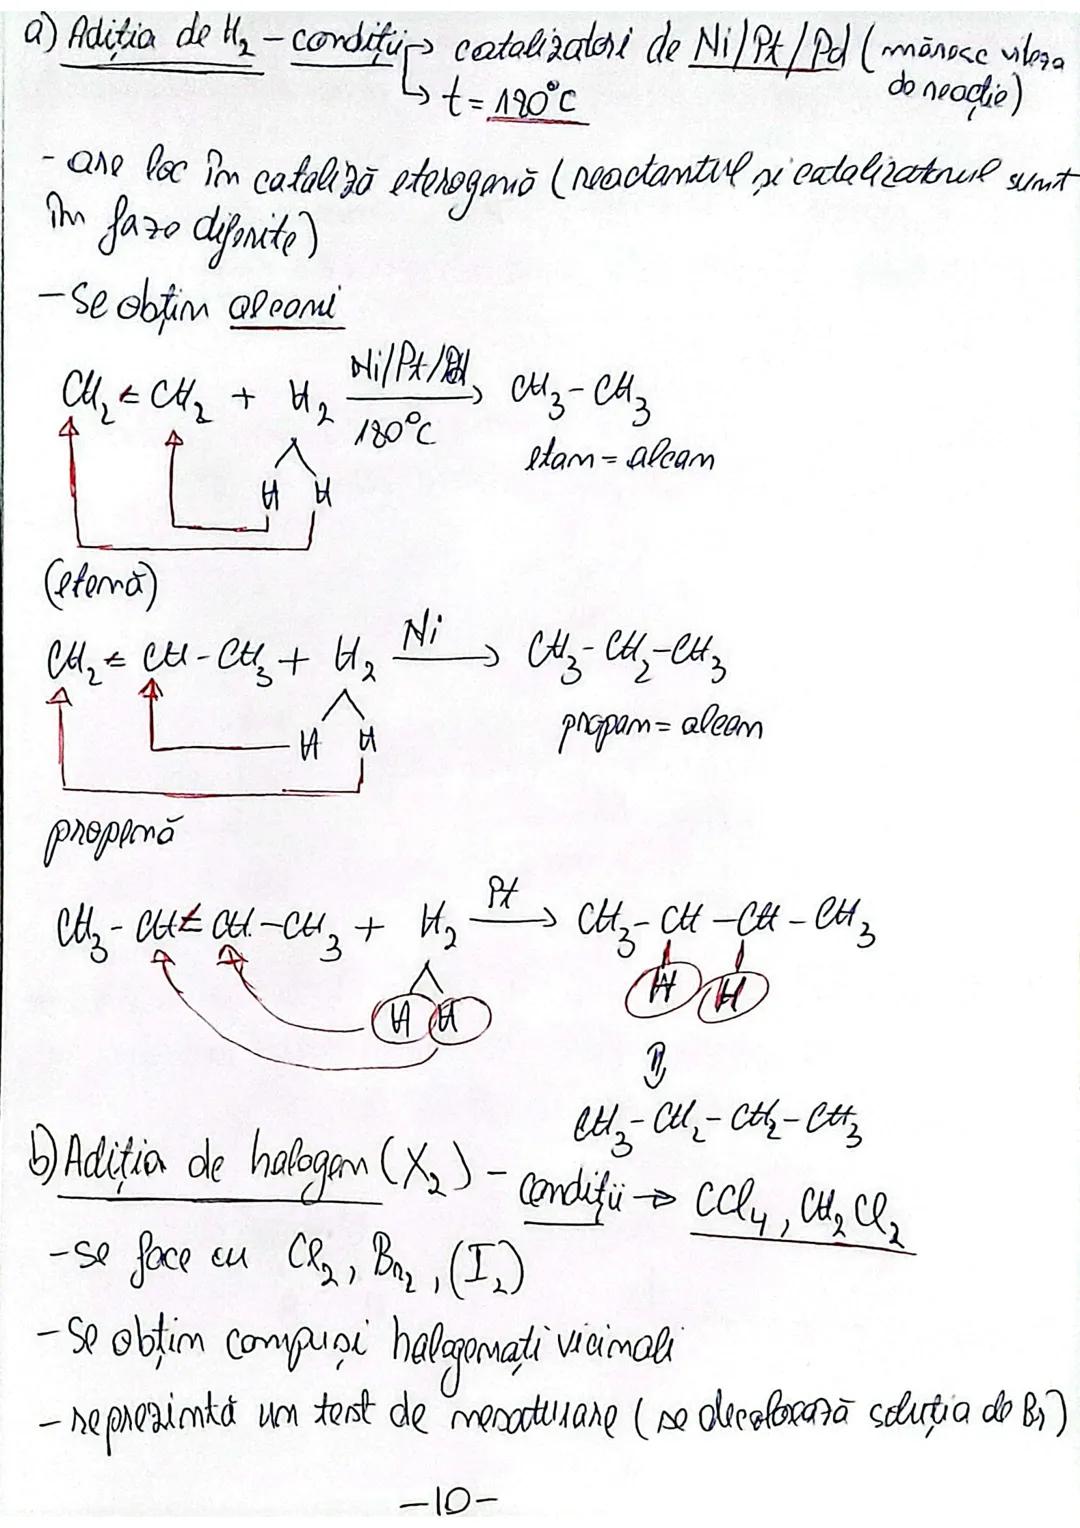 a) Adiția de H₂ - condiții → catalizatori de Ni/Pt/Pd (măresc viteza
↳ t = 180°C de reacție)
- are loc în cataliză eterogenă (reactantul și catalizatorul sunt
în faze diferite)
- Se obțin alcani
CH₂ = CH₂ + H₂ Ni/Pt/Pd → CH₃ - CH₃
180°C
etan = alcan
H H
(etenă)
CH₂ = CH - CH₃ + H₂ Ni → CH₃ - CH₂ - CH₃
H H propan = alcan
propenă
CH₃ - CH = CH - CH₃ + H₂ Pt → CH₃ - CH - CH - CH₃
H H H H
⇓
CH₃ - CH₂ - CH₂ - CH₃
b) Adiția de halogen (X₂) - condiții → CCl₄, CH₂Cl₂
- se face cu Cl₂, Br₂, (I₂)
- Se obțin compuși halogenați vicinali
- reprezintă un test de nesaturare (se decolorează soluția de Br₂)
-10-